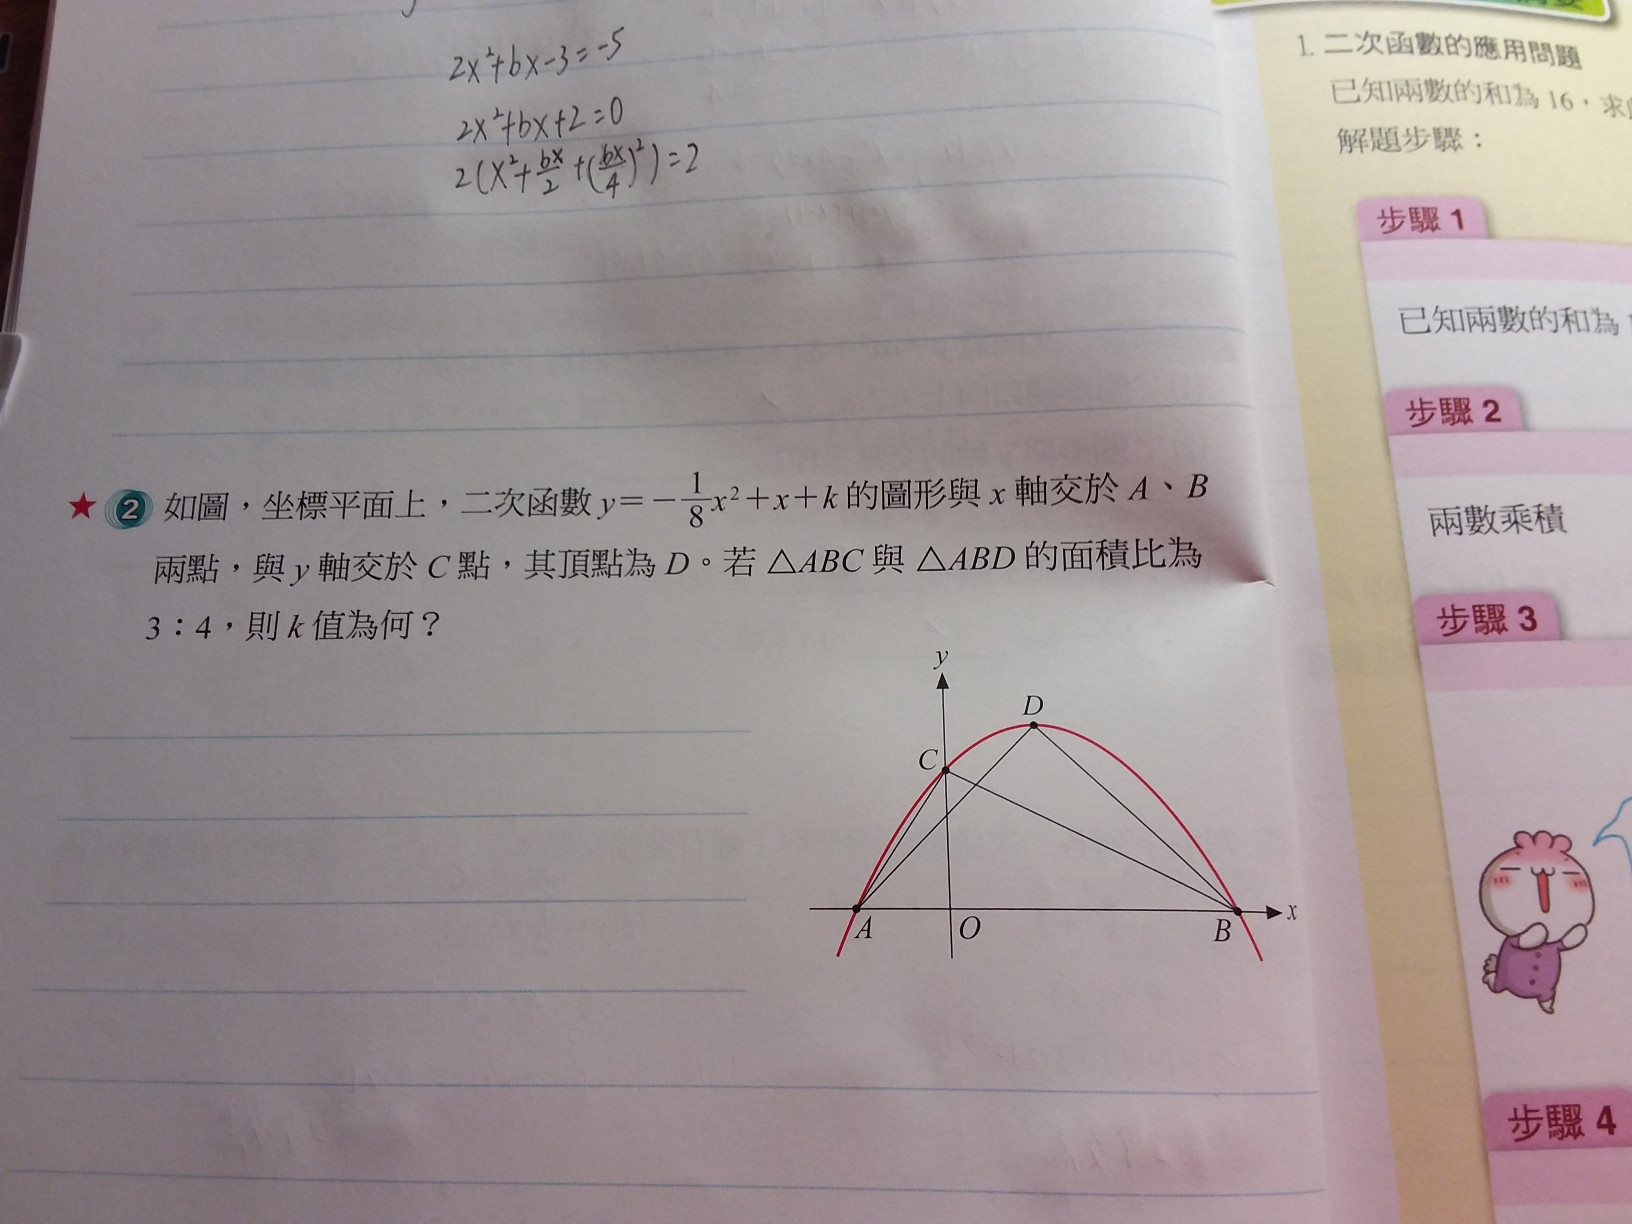 2x²+bx-3=-5
2x²+bx+2=0
2(x²+bx/2+(bx/4)²)=2
★ 2 如圖，坐標平面上，二次函數 y=-1/8x²+x+k 的圖形與 x 軸交於 A、B
兩點，與 y 軸交於 C 點，其頂點為 D。若 △ABC 與 △ABD 的面積比為
3：4，則 k 值為何？
y
D
C
A
O
B
x
1. 二次函數的應用問題
已知兩數的和為 16，求
解題步驟：
步驟 1
已知兩數的和為
步驟 2
兩數乘積
步驟 3
步驟 4